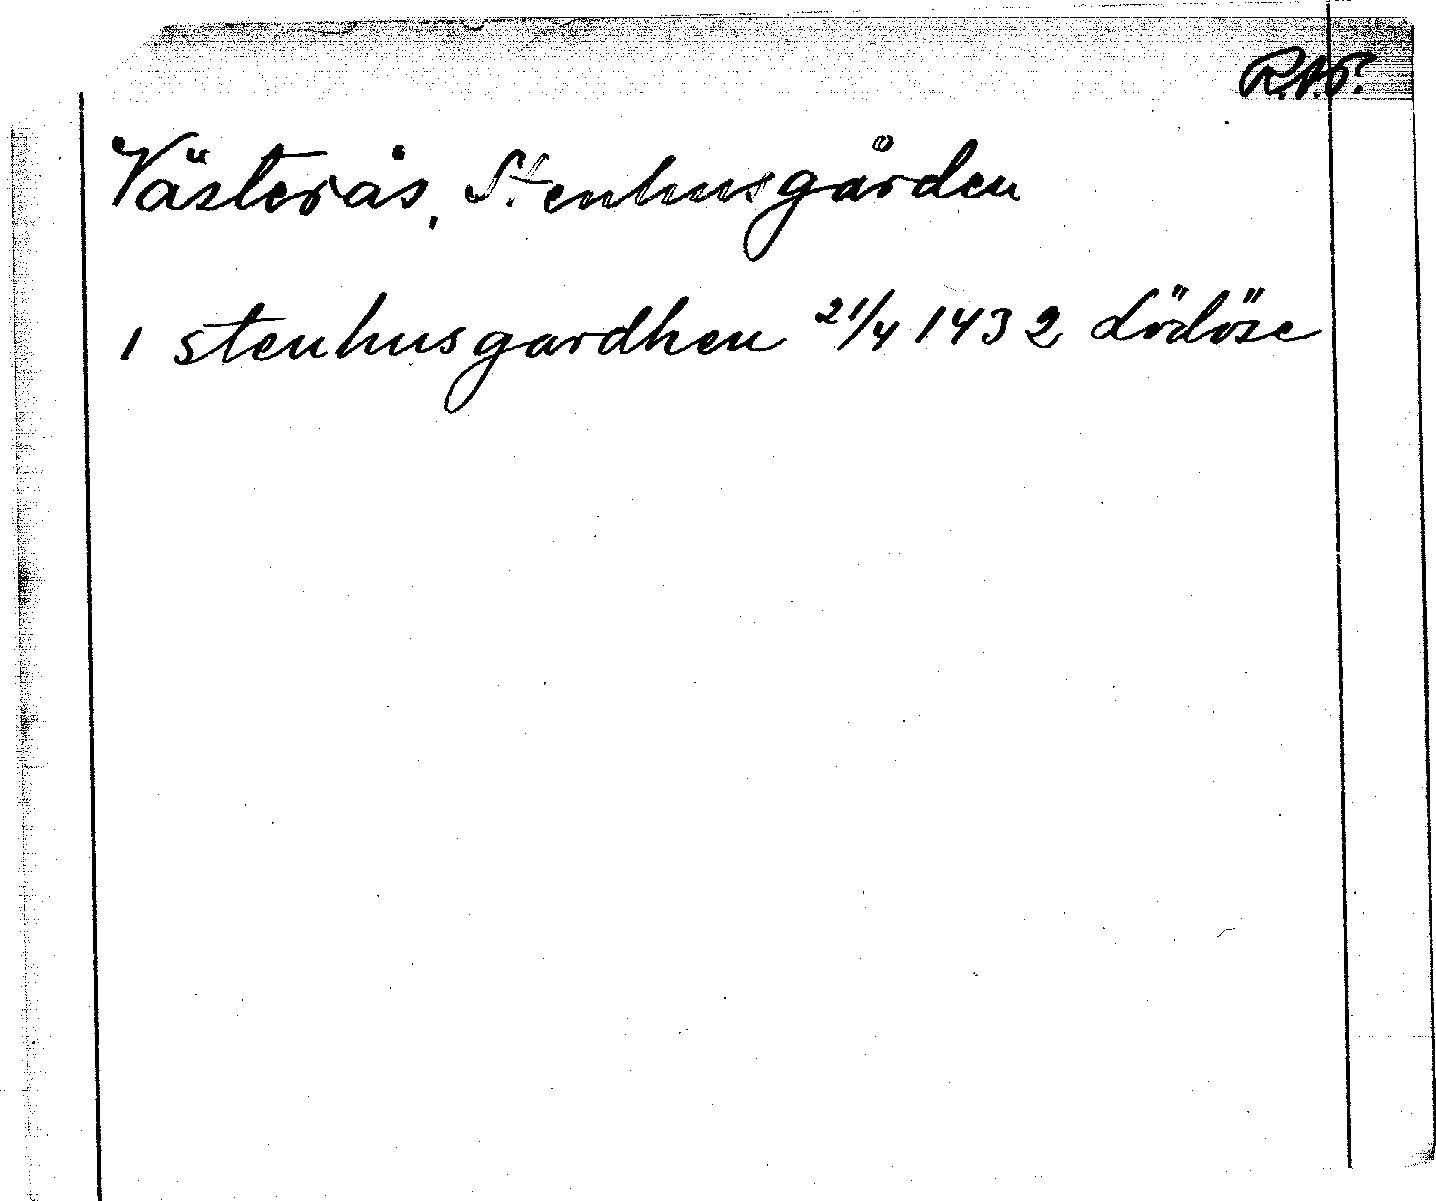 R.A.P.
Västerås, Stenhusgården
1 stenhusgardhen 21/4 1432 Lödöse